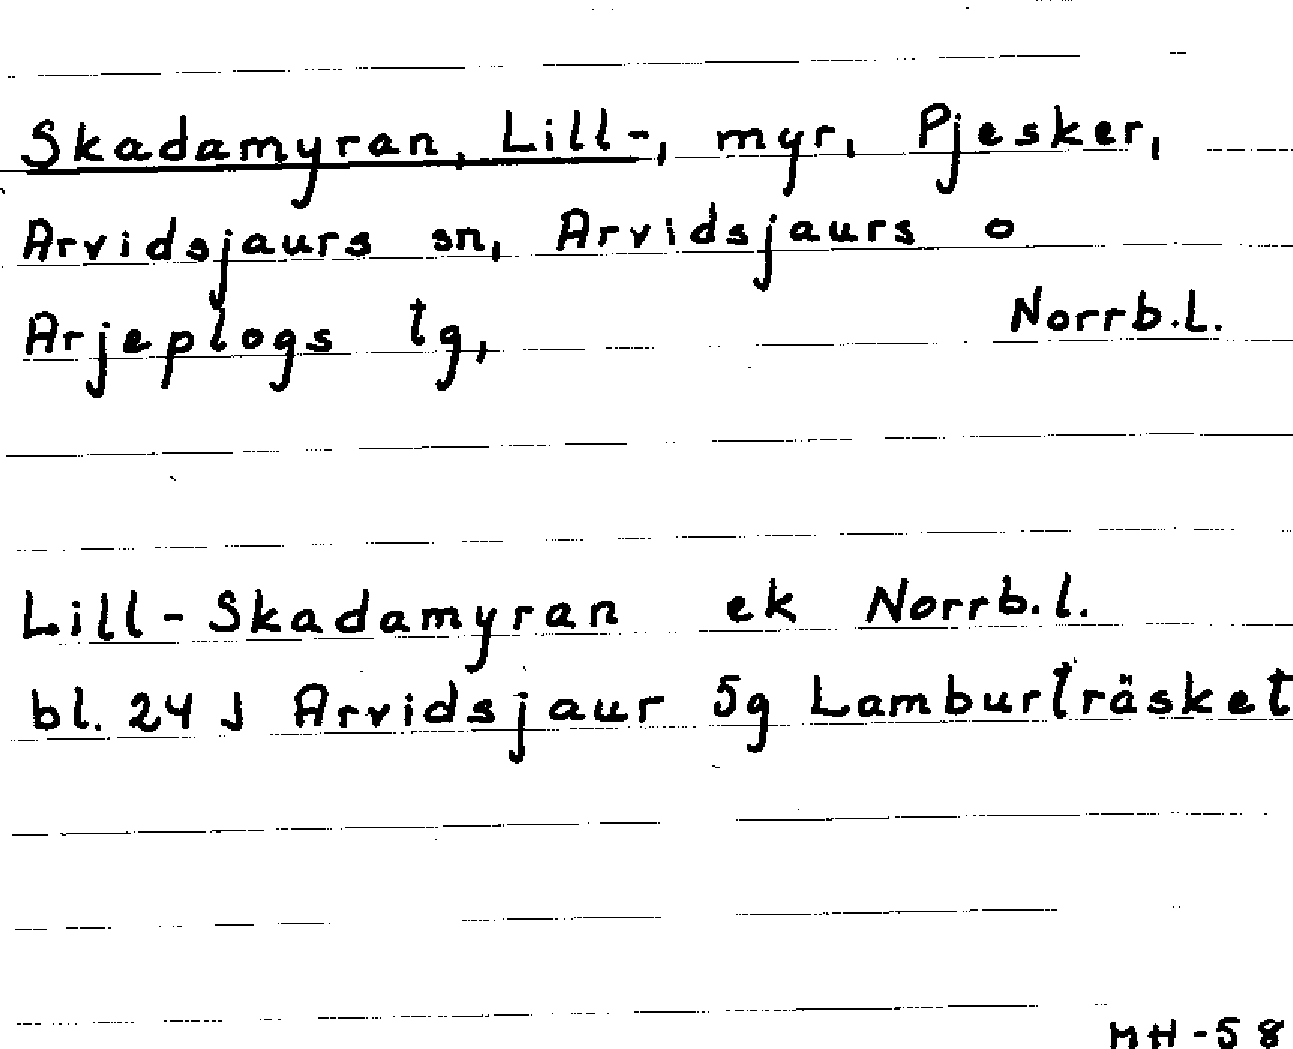 Skadamyran, Lill-, myr, Pjesker,
Arvidsjaurs sn, Arvidsjaurs o
Arjeplogs tg, Norrb.l.
Lill-Skadamyran ek Norrb.l.
bl. 24 J Arvidsjaur 5g Lamburträsket
MH-58